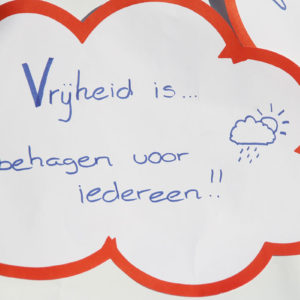 Vrijheid is...
behagen voor
iedereen!!